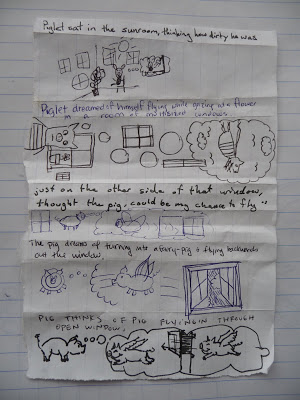 Piglet sat in the sunroom, thinking how dirty he was
Piglet dreamed of himself flying while eating at a flower
in a room of multisized windows
just on the other side of that window,
thought the pig, could be my chance to fly"
The pig dreams of turning into a fairy-pig & flying backwards
out the window.
PIG THINKS OF PIG FLYING IN THROUGH
OPEN WINDOW.